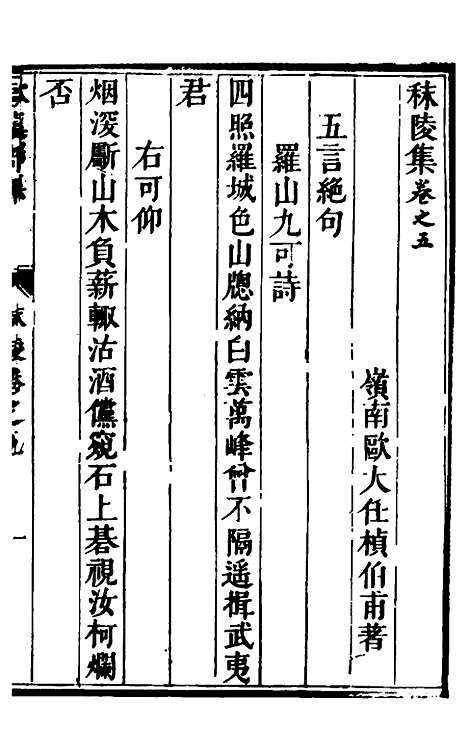 秣陵集卷之五
嶺南歐大任楨伯甫著
五言絶句
羅山九可詩
四照羅城色山牕納白雲萬峰曾不隔遥揖武夷
君
右可仰
烟深斸山木負薪輙沽酒儻窺石上碁視汝柯爛
否
秣陵卷之五
一